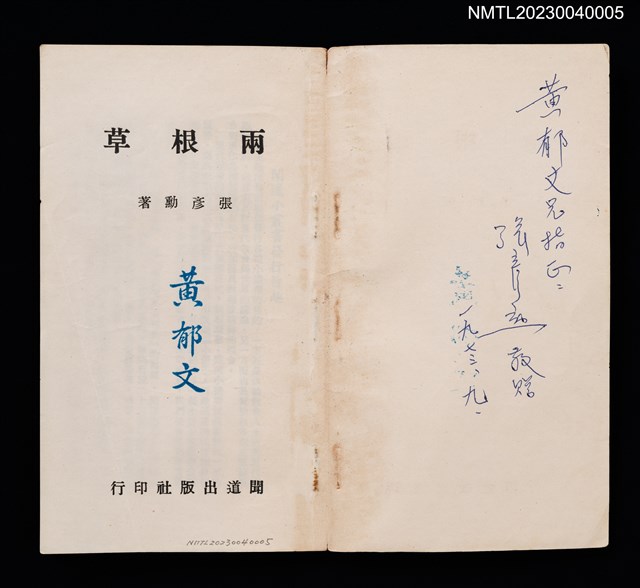 NMTL20230040005
黃郁文兄指正：
張彥勳 敬贈
一九七三、九、
兩根草
張彥勳著
黃郁文
聞道出版社印行
NMTL20230040005